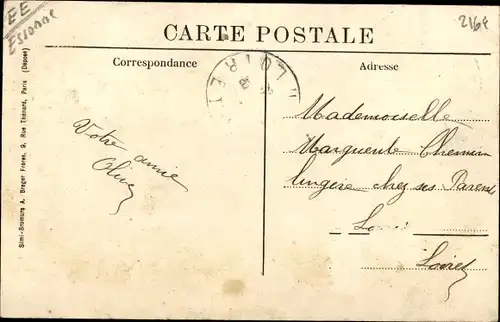 EE
Essonne
2164
CARTE POSTALE
Correspondance
Adresse
LOIRET
Votre amie
Olive
Mademoiselle
Marguerite
lingère chez ses Parents
Loiret
Simi-Bromure A. Breger Frères, 9, Rue Thénard, Paris (Déposé)